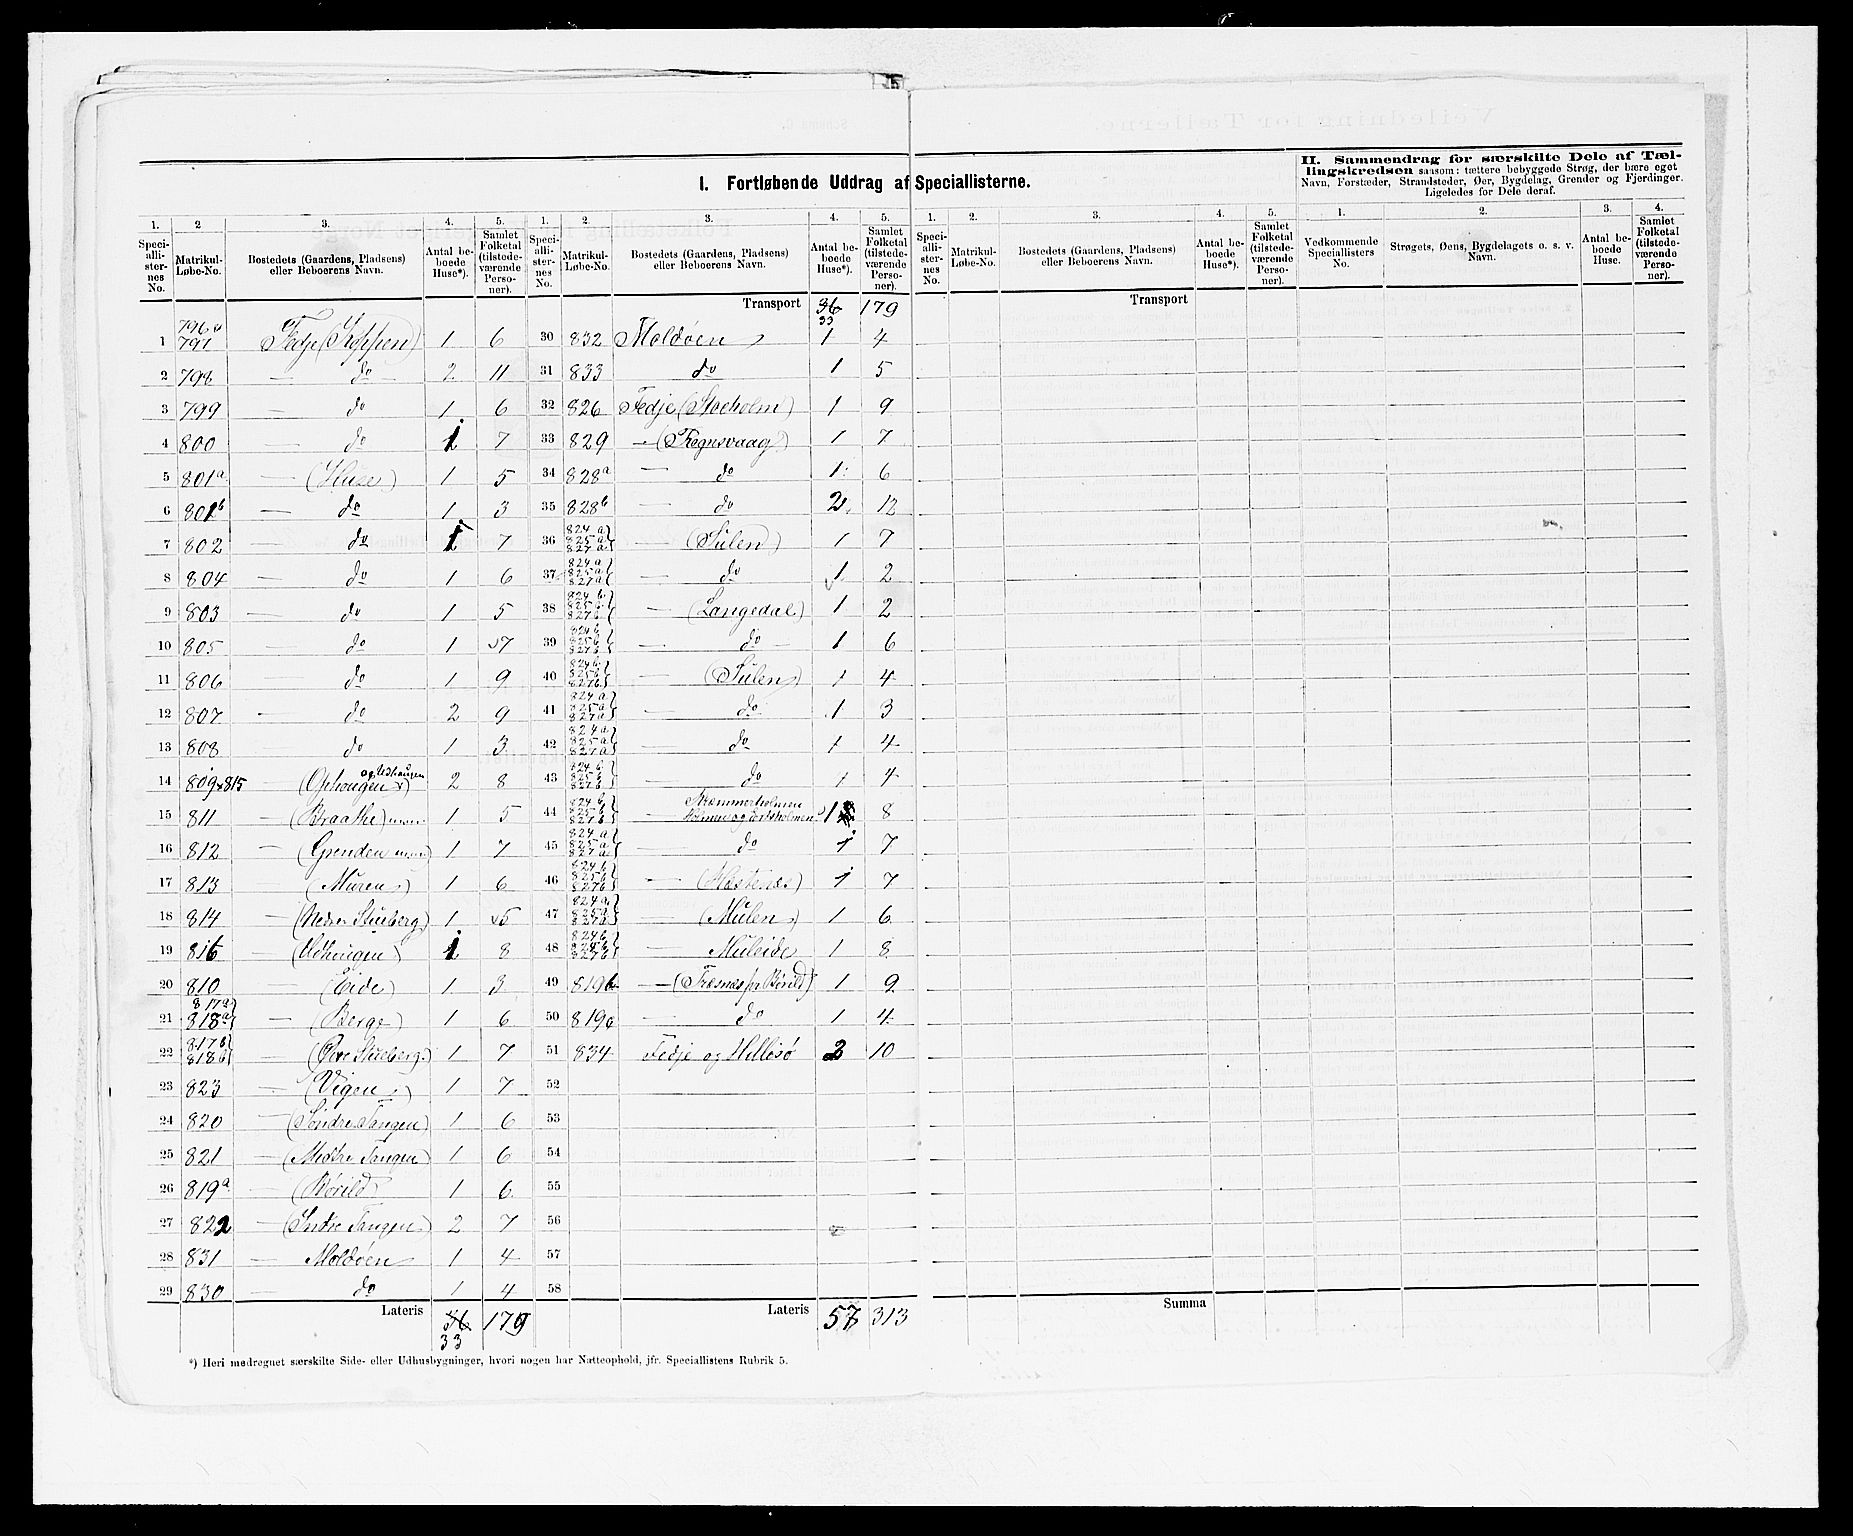 I. Fortløbende Uddrag af Speciallisterne.
II. Sammendrag for særskilte Dele af Tæl-
lingskredsen saasom: tættere bebyggede Strøg, der bære eget
Navn, Forstæder, Strandsteder, Øer, Bygdelag, Grender og Fjerdinger.
Ligeledes for Dele deraf.
1. 2 3. 4. 5. 1. 2. 3. 4. 5. 1. 2. 3. 4. 5. 1. 2. 3. 4.
Speci-alli-ster-nes No. Matrikul-Løbe-No. Bostedets (Gaardens, Pladsens) eller Beboerens Navn. Antal be-boede Huse*). Samlet Folketal (tilstede-værende Perso-ner).
Speci-alli-ster-nes No. Matrikul-Løbe-No. Bostedets (Gaardens, Pladsens) eller Beboerens Navn. Antal be-boede Huse*). Samlet Folketal (tilstede-værende Perso-ner).
Speci-alli-ster-nes No. Matrikul-Løbe-No. Bostedets (Gaardens, Pladsens) eller Beboerens Navn. Antal be-boede Huse*). Samlet Folketal (tilstede-værende Perso-ner).
Vedkommende Speciallisters No. Strøgets, Øens, Bygdelagets o. s. v. Navn. Antal be-boede Huse. Samlet Folketal (tilstede-værende Perso-ner).
1 796a 797 Fedje 1 6
2 798 — do 2 11
3 799 do 1 6
4 800 — do 1 7
5 801a — (Huse) 1 5
6 801b — do 1 3
7 802 — do 1 7
8 804 — do 1 6
9 803 — do 1 5
10 805 — do 1 7
11 806 — do 1 9
12 807 — do 2 9
13 808 — do 1 3
14 809 & 815 — 2 8
15 811 — (Braathe) 1 5
16 812 — (Grenden 1 7
17 813 — (Muren) 1 6
18 814 — (Nedre Stueberg) 1 5
19 816 — 1 8
20 810 — (Eide) 1 3
21 817a 818a — (Berge) 1 6
22 817b 818b — (Øvre Stueberg) 1 7
23 823 — (Vigen) 1 7
24 820 — (Søndre Tangen) 1 6
25 821 — (Midtre Tangen) 1 6
26 819a — (Børild) 1 6
27 822 — (Indre Tangen) 2 7
28 831 — Moldøen 1 4
29 830 — do 1 4
Lateris 36 179
33
Transport 36 179
33
30 832 Moldøen 1 4
31 833 do 1 5
32 826 Fedje (Stocholm) 1 9
33 829 — (Rognsvaag) 1 7
34 828a — do 1 6
35 828b — do 2 12
36 824a 825a 827a — (Sulen) 1 7
37 824a 825a 827a — do 1 2
38 824b 825b 827b — (Langedal) 1 2
39 824b 825b 827b — do 1 6
40 824b 825b 827b — (Sulen) 1 4
41 824a 825a 827a — do 1 3
42 824a 825a 827a — do 1 4
43 824b 825b 827b — do 1 4
44 824b 825b 827b Kræmmerholmen 1 8
45 824a 825a 827a — do 1 7
46 824b 825b 827b — 1 7
47 824a 825a 827a — (Mulen) 1 6
48 824b 825b 827b — Muleide 1 8
49 819b — 1 9
50 819c — do 1 4
51 834 Fedje og Hillesø 2 10
52
53
54
55
56
57
58
Lateris 57 313
Transport
Summa
*) Heri medregnet særskilte Side- eller Udhusbygninger, hvori nogen har Natteophold, jfr. Speciallistens Rubrik 5.